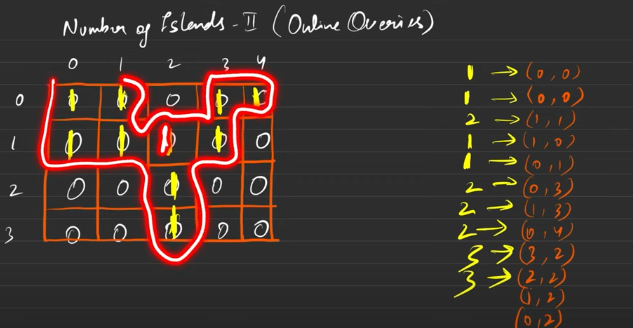 Number of Islands - II (Online Queries)
0 1 2 3 4
0 0 0 0 0 0
1 0 0 1 0 0
2 0 0 0 0 0
3 0 0 0 0 0
1 → (0,0)
1 → (0,0)
2 → (1,1)
1 → (1,0)
1 → (0,1)
2 → (0,3)
2 → (1,3)
2 → (0,4)
3 → (3,2)
3 → (2,2)
(1,2)
(0,2)